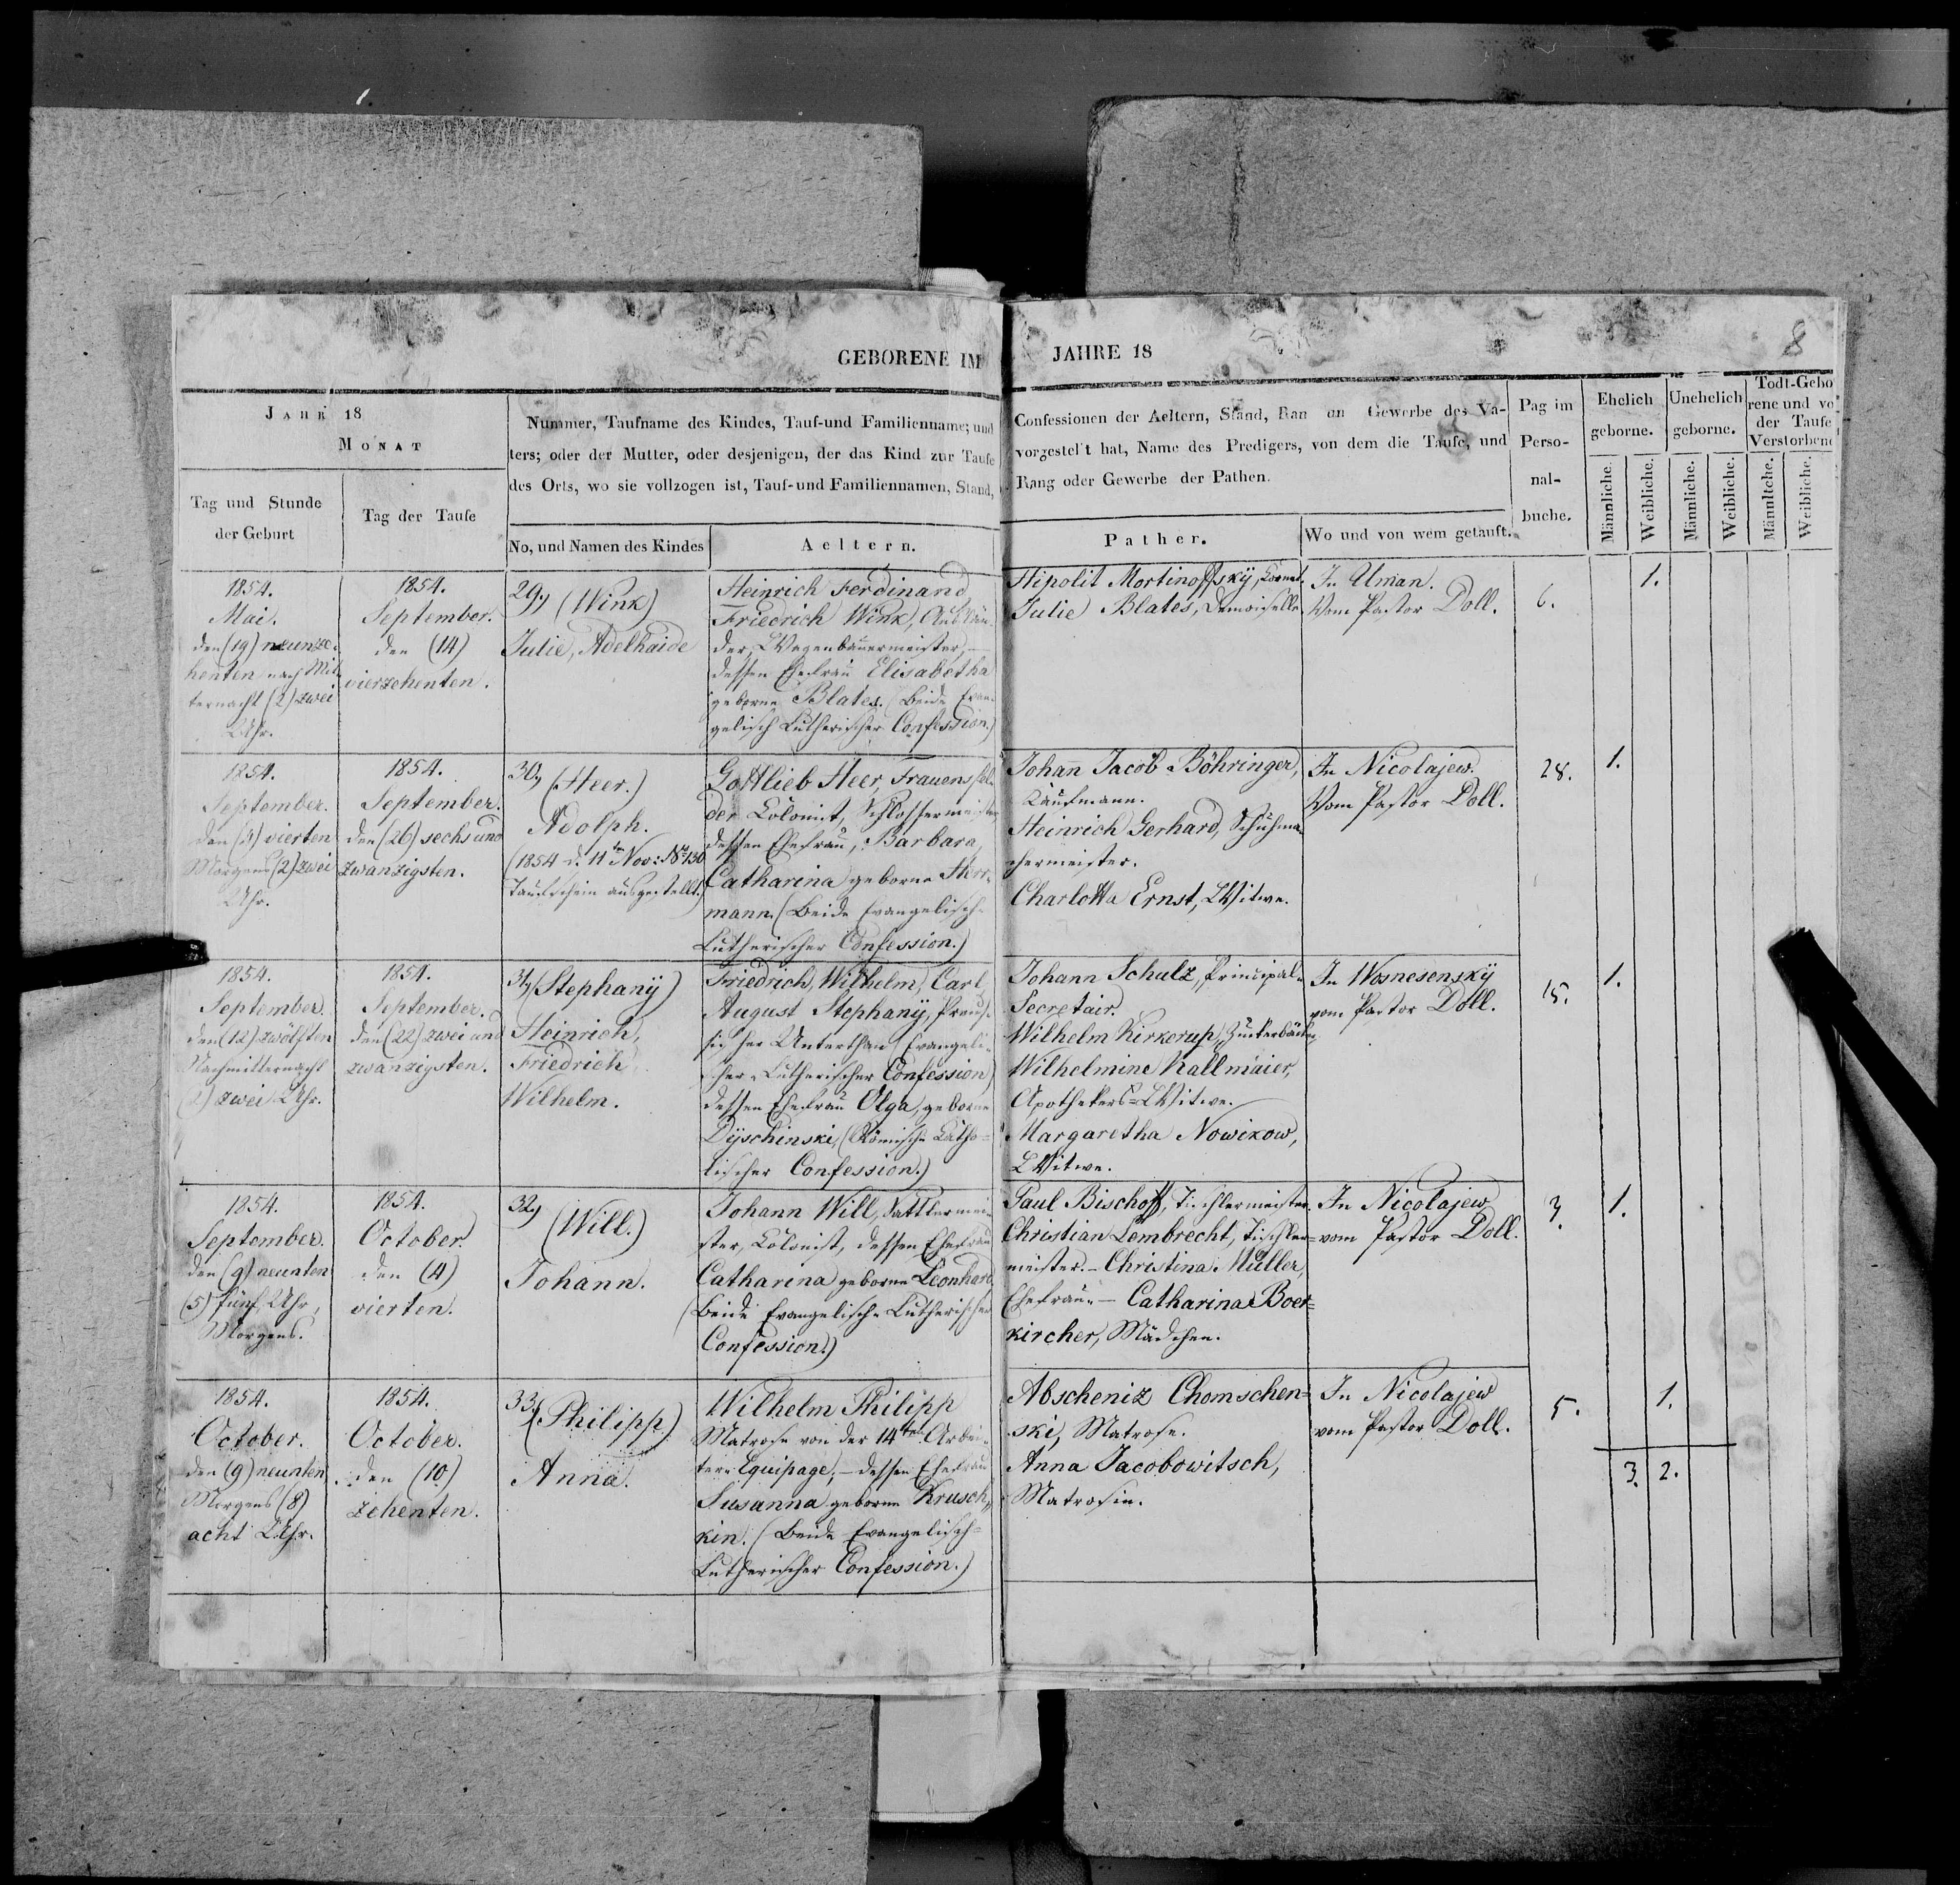 8
GEBORENE IM JAHRE 18
JAHR 18
MONAT
Tag und Stunde
der Geburt
Tag der Taufe
Nummer, Taufname des Kindes, Tauf-und Familienname; und
ters; oder der Mutter, oder desjenigen, der das Kind zur Taufe
des Orts, wo sie vollzogen ist, Tauf-und Familiennamen, Stand,
No, und Namen des Kindes
Aeltern.
Confessionen der Aeltern, Stand, Ran an Gewerbe des Va-
vorgestel't hat, Name des Predigers, von dem die Taufe, und
Rang oder Gewerbe der Pathen.
Pather.
Wo und von wem getauft.
Pag im
Perso-
nal-
buche.
Ehelich
geborne.
Unehelich
geborne.
Todt-Gebo
rene und vo
der Taufe
Verstorbene
Männliche.
Weibliche.
Männliche.
Weibliche.
Männltche.
Weibliche.
1854.
Mai.
den (19) neunze-
henten nach Mit
ternacht (2) zwei
Uhr.
1854.
September.
den (14)
vierzehenten.
29, (Wink)
Julie, Adelhaide
Heinrich Ferdinand
Friedrich Wink, Auslän-
der, Wagenbauermeister, –
dessen Ehefrau Elisabetha
geborne Blates. (Beide Evan-
gelisch Lutherischer Confession.)
Hipolit Mortinoffskÿ, Cornet.
Julie Blates, Demoiselle
In Uman.
Vom Pastor Doll.
6.
1.
1854.
September.
den (4) vierten
Morgens (2) zwei
Uhr.
1854.
September.
den (26) sechs und
zwanzigsten.
30, (Heer.)
Adolph.
(1854 d. 11ten Nov: No 130
Taufschein ausgestellt.)
Gottlieb Heer, Frauensfel-
der Colonist, Schlossermeister
dessen Ehefrau, Barbara,
Catharina geborne Herr-
mann. (Beide Evangelisch-
Lutherischer Confession.)
Johann Jacob Böhringer,
Kaufmann.
Heinrich Gerhard, Schuhma-
chermeister.
Charlotta Ernst, Witwe.
In Nicolajew.
Vom Pastor Doll.
28.
1.
1854.
September.
den (12) zwölften
Nachmitternacht
(2) zwei Uhr.
1854.
September.
den (22) zwei und
zwanzigsten.
31, (Stephanÿ)
Heinrich,
Friedrich
Wilhelm.
Friedrich, Wilhelm, Carl,
August Stephanÿ, Preus-
sischer Unterthan (Evangeli-
scher-Lutherischer Confession)
dessen Ehefrau Olga, geborne
Dÿschinski, (Römisch-Catho-
lischer Confession.)
Johann Schulz, Principal-
Secretair.
Wilhelm Kirkerup, Zuckerbäcker,
Wilhelmine Kallmaier,
Apothekers-Witwe.
Margaretha Nowikow,
Witwe.
In Wosnesenskÿ
vom Pastor Doll.
15.
1.
1854.
September.
den (9) neunten
(5) fünf Uhr,
Morgens.
1854.
October.
den (4)
vierten.
32, (Will.)
Johann.
Johann Will, Sattlermei-
ster, Colonist, dessen Ehefrau
Catharina geborne Leonhard
(Beide Evangelisch-Lutherischer
Confession.)
Paul Bischoff, Tischlermeister.
Christian Lembrecht, Tischler-
meister. – Christina Müller,
Ehefrau. – Catharina Boer-
kircher, Mädchen.
In Nicolajew
vom Pastor Doll.
3.
1.
1854.
October.
den (9) neunten
Morgens (8)
acht Uhr.
1854.
October.
den (10)
zehenten.
33, (Philipp)
Anna.
Wilhelm Philipp
Matrose von der 14ten Arbei-
ter-Equipage, – dessen Ehefrau
Susanna geborne Krusch-
kin. (Beide Evangelisch-
Lutherischer Confession.)
Abscheniz Chomschen-
ski, Matrose.
Anna Jacobowitsch,
Matrosin.
In Nicolajew
vom Pastor Doll.
5.
1.
3. 2.